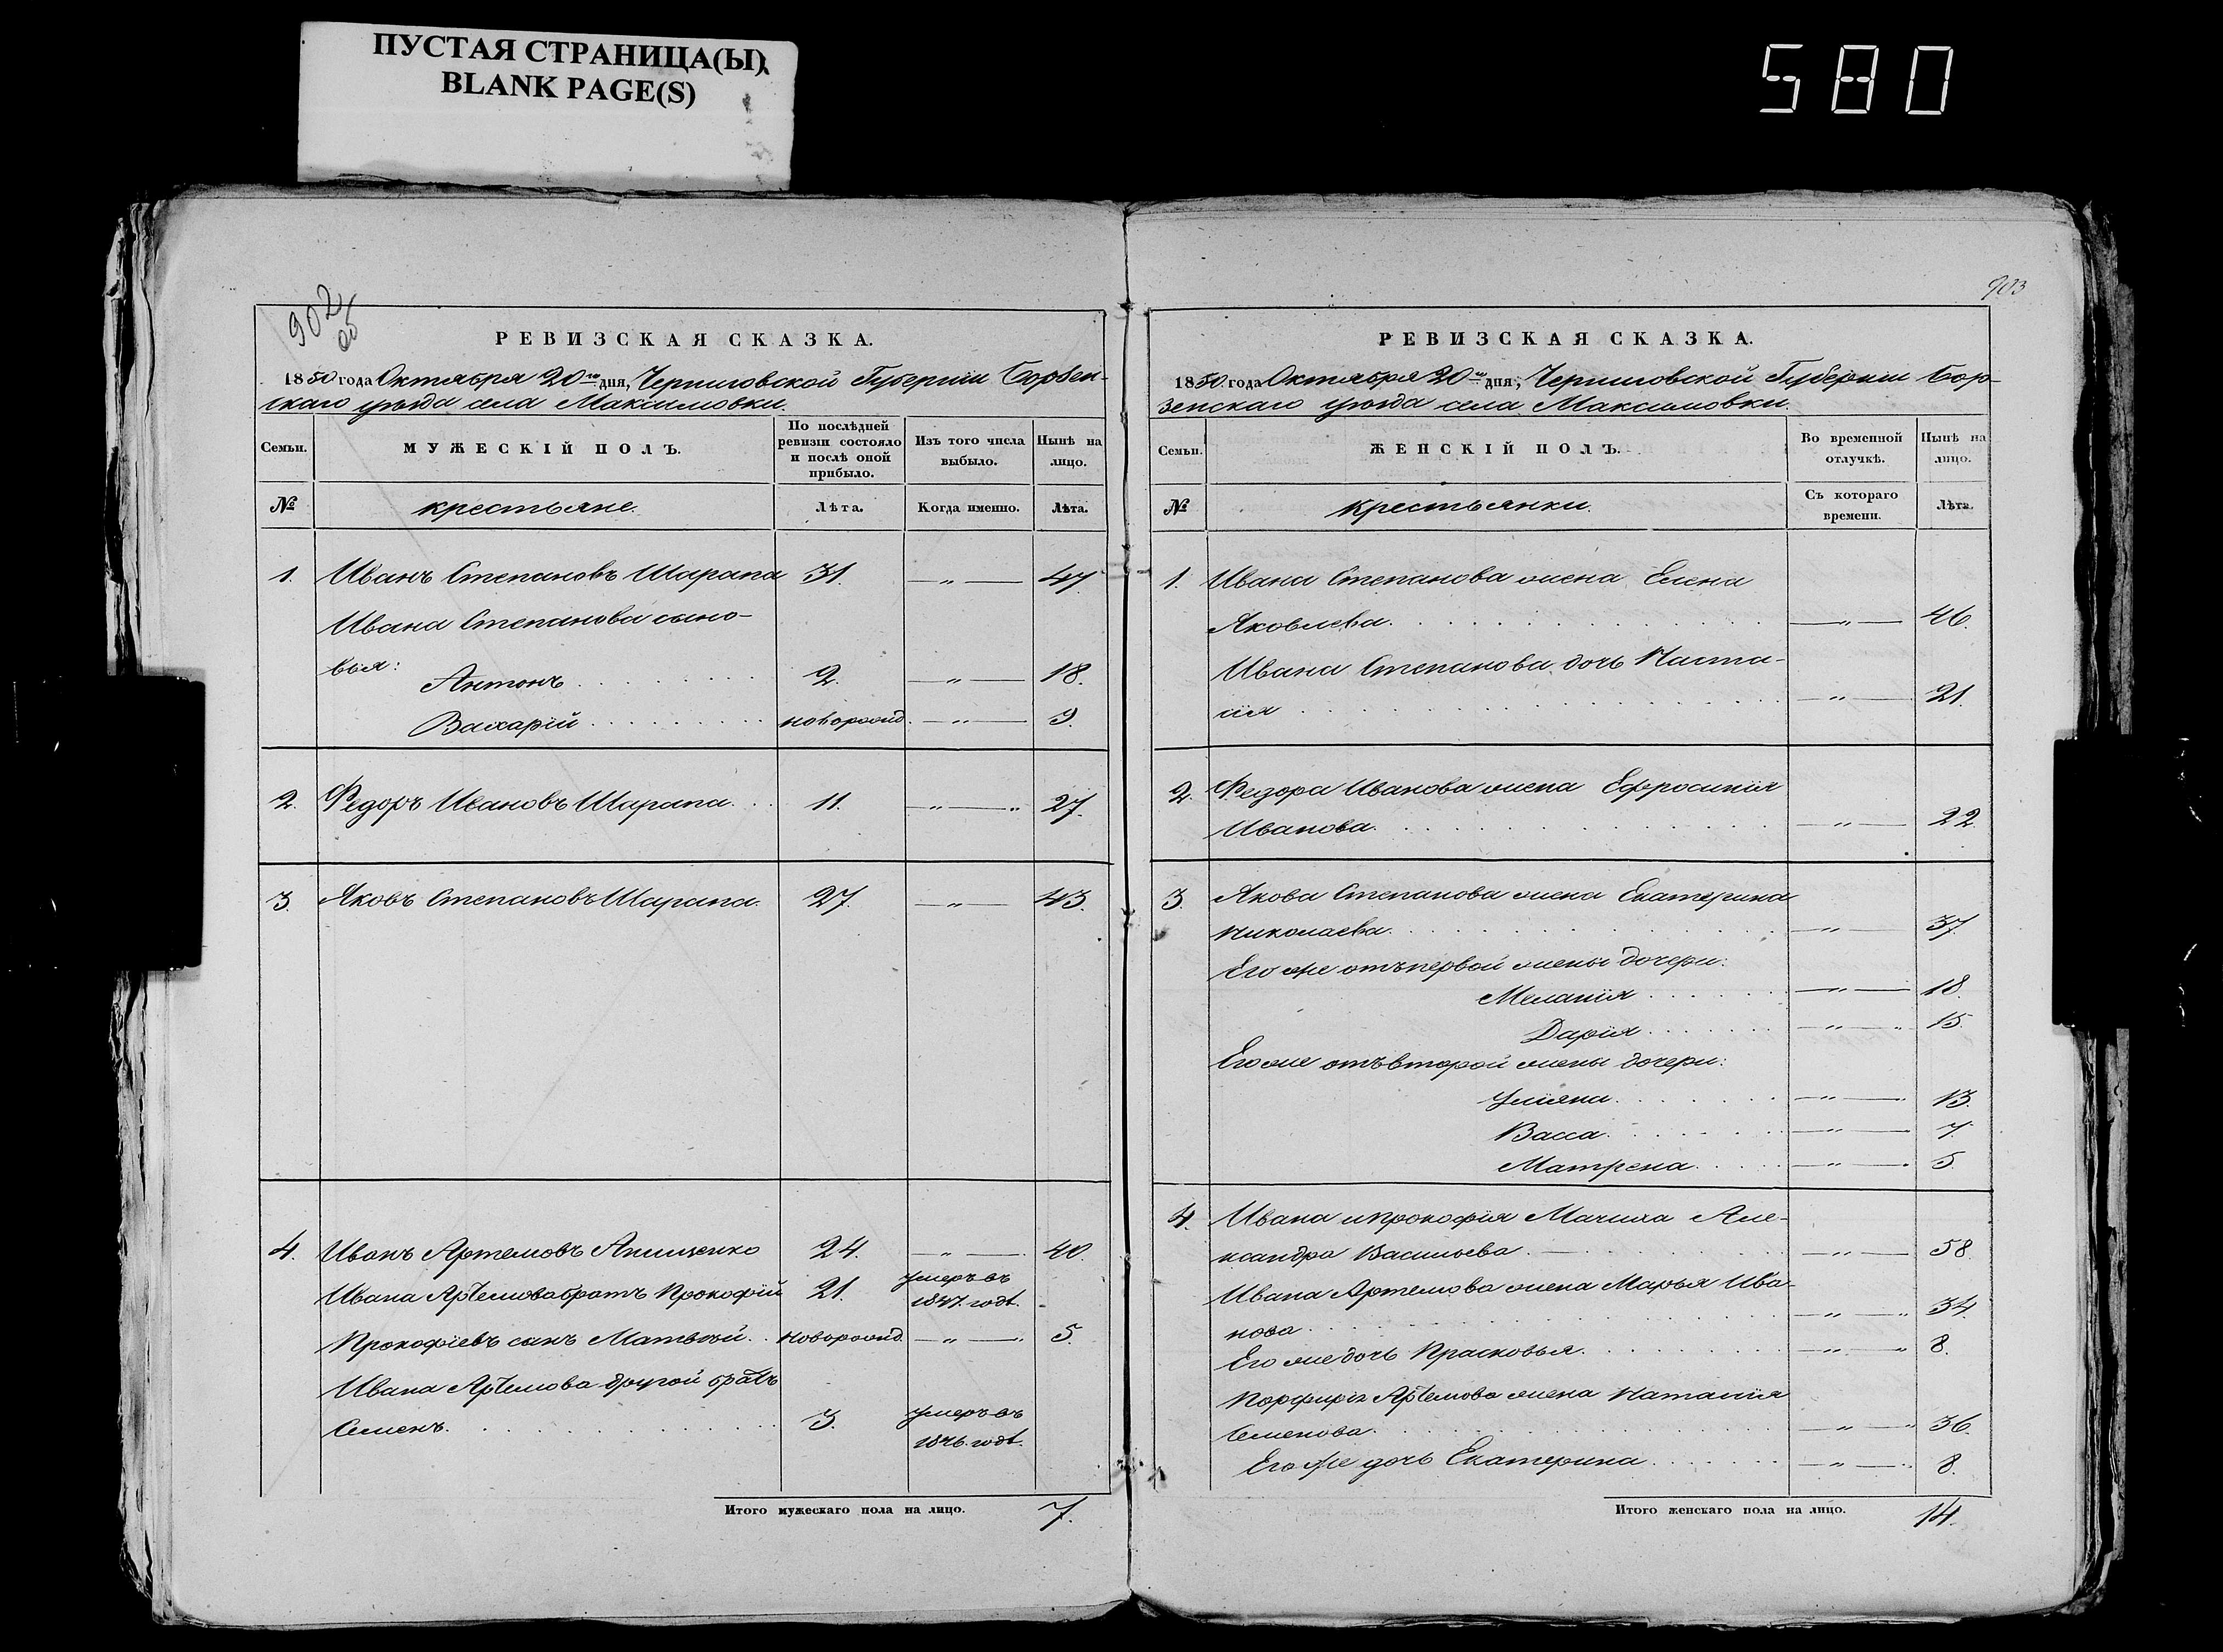 ПУСТАЯ СТРАНИЦА(Ы)
BLANK PAGE(S)
580
902
об
РЕВИЗСКАЯ СКАЗКА.
1850 года Октября 20го дня, Черниговской Губернии Борзен-
скаго уѣзда села Максимовки.
Семьи.
МУЖЕСКІЙ ПОЛЪ.
По послѣдней ревизіи состояло и послѣ оной прибыло.
Изъ того числа выбыло.
Нынѣ на лицо.
№
крестьяне.
Лѣта.
Когда именно.
Лѣта.
1. Иванъ Степановъ Шарапа 31. —„— 47.
Ивана Степанова сыно-
вья:
Антонъ . . . 2. —„— 18.
Захарій . . . новорожд. —„— 9.
2. Федоръ Ивановъ Шарапа. . . 11. „—„ 27.
3. Яковъ Степановъ Шарапа. 27. —„— 43.
4. Иванъ Артемовъ Анищенко 24. —„— 40.
Ивана Артемова братъ Прокофій 21. умеръ въ 1847. годѣ.
Прокофіевъ сынъ Матвѣй. . новорожд. —„— 5.
Ивана Артемова другой братъ
Семенъ. . . . 3. умеръ въ 1846. годѣ.
Итого мужескаго пола на лицо. 7.
903
РЕВИЗСКАЯ СКАЗКА.
1850 года Октября 20го дня, Черниговской Губернии Бор-
зенскаго уѣзда села Максимовки.
Семьи.
ЖЕНСКІЙ ПОЛЪ.
Во временной отлучкѣ.
Нынѣ на лицо.
№
крестьянки.
Съ котораго времени.
Лѣта.
1. Ивана Степанова жена Елена
Яковлева. . . . —„— 46.
Ивана Степанова дочь Наста-
сія . . . —„— 21.
2. Федора Иванова жена Ефросинія
Иванова. . . . —„— 22.
3. Якова Степанова жена Екатерина
Николаева. . . . —„— 37.
Его же отъ первой жены дочери:
Меланія . . . —„— 18.
Дарія . . . —„— 15.
Его же отъ второй жены дочери:
Уліяна. . . . —„— 13.
Васса. . . . —„— 7.
Матрена. . . . —„— 5.
4. Ивана и Прокофія Мачиха Але-
ксандра Васильева. . . . —„— 58.
Ивана Артемова жена Марья Ива-
нова . . . —„— 34.
Его же дочь Прасковья. . . . —„— 8.
Порфирія Артемова жена Наталія
Семенова. . . . —„— 36.
Его же дочь Екатерина . . . —„— 8.
Итого женскаго пола на лицо. 14.